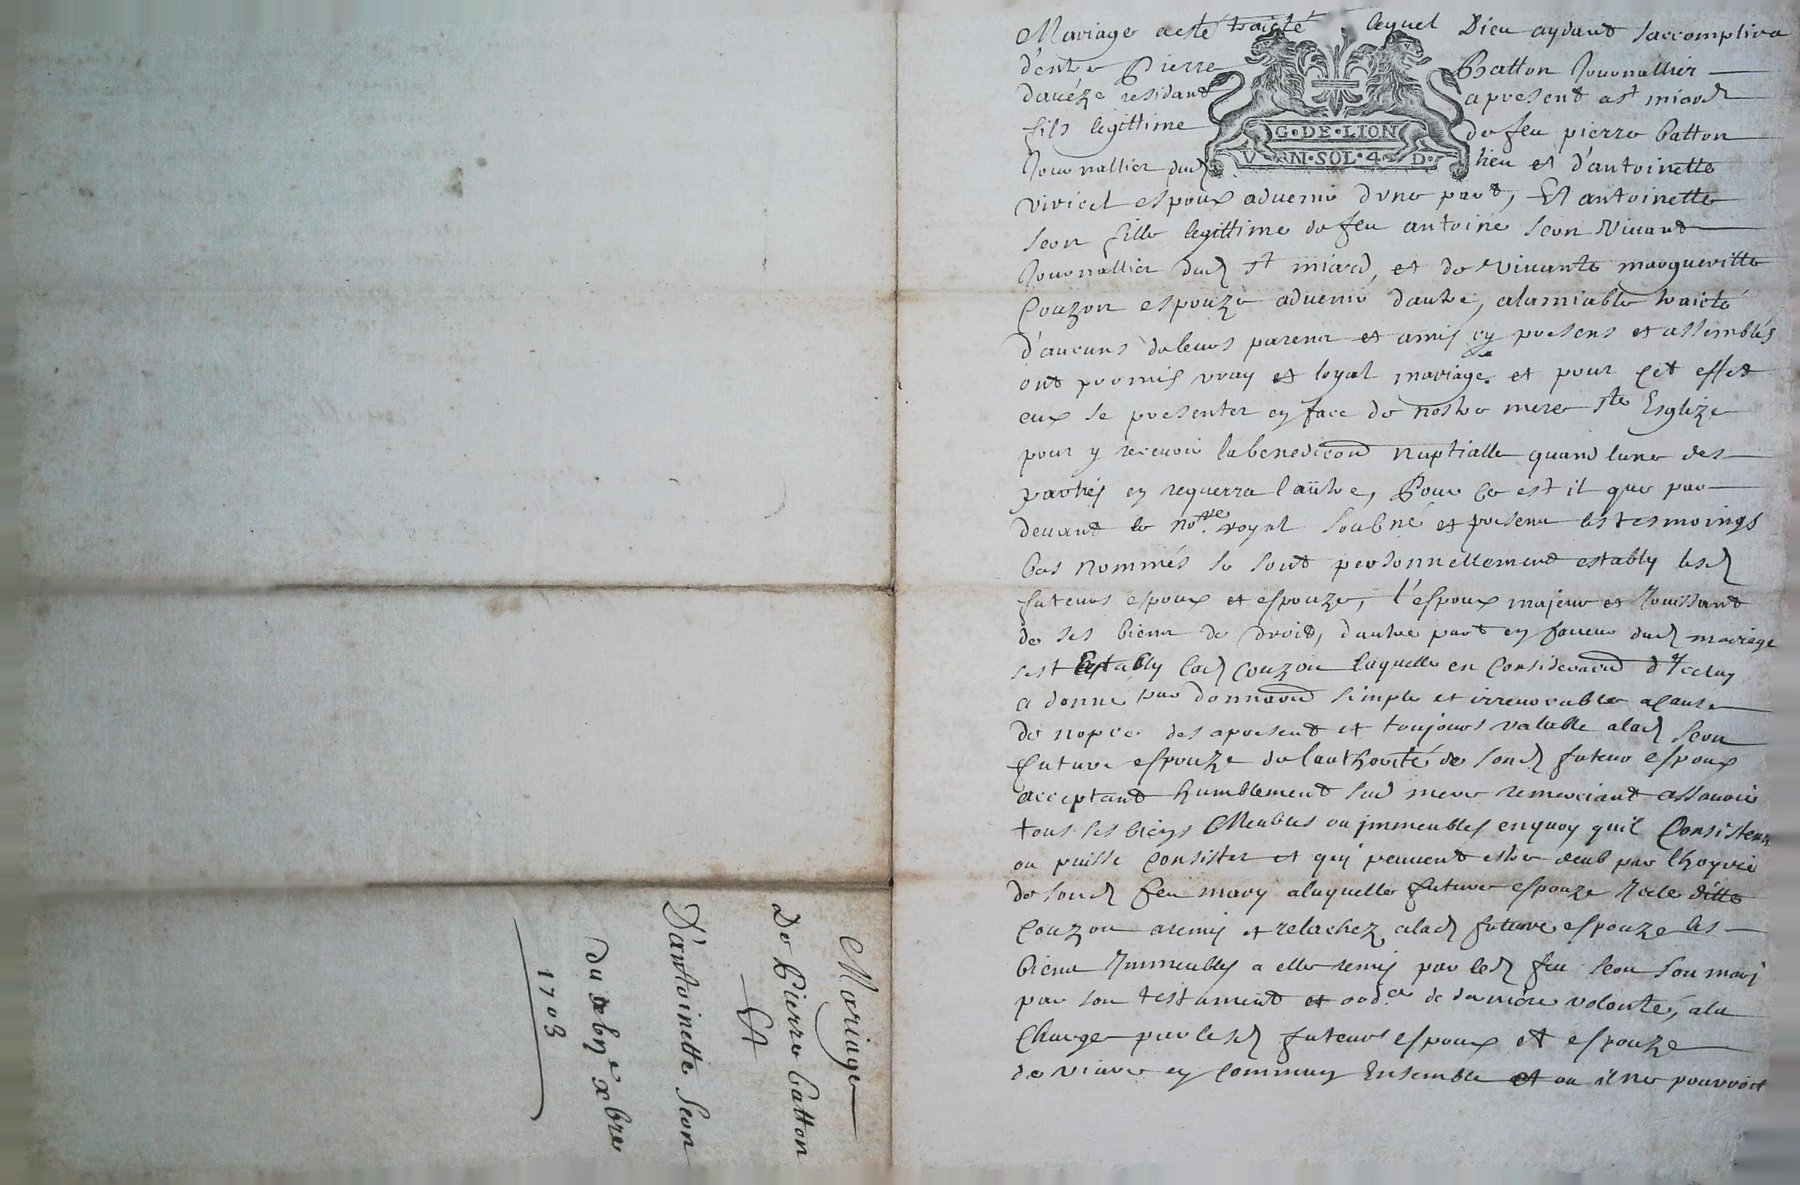 Mariage a esté traicté lequel Dieu aydant saccomplira
d'entre Pierre Batton Journallier
davéze residant a present a st miard
fils legittime de feu pierre batton
Journallier dud lieu et d'antoinette
viricel espoux advenir dune part, Et antoinette
seon fille legittime de feu antoine seon vivant
Journallier dud st miard, et de vivante margueritte
Couzon espouze advenir dautre, alamiable traicté
d'aucuns de leurs parens et amis cy presens et assemblés
ont promis vray et loyal mariage et pour cet effet
eux se presenter en face de nostre mere ste Esglize
pour y recevoir la benediction nuptialle quand lune des
parties en requerra l'autre, Pour ce est il que par
devant le nore royal soubné et presens les tesmoings
bas nommés se sont personnellement estably lesd
futeurs espoux et espouze, l'espoux majeur et Jouissant
de ses biens de droit, dautre part en faveur dud mariage
sest establly lad couzon laquelle en consideration d'Iceluy
a donné par donnation simple et irrevocable a cause
de nopces des apresent et toujours valable a lad seon
future espouze de lauthorité de sond futeur espoux
acceptant humblement sad mere remerciant assavoir
tous ses biens Meubles ou immeubles en quoy quil Consistent
ou puisse consister et qui peuvent estre par lhoyrie
de sond feu mary a laquelle future espouze Icele ditte
Couzon a remis et relachez a lad future espouze les
biens Immeubles a elle remis par led feu seon son mary
par son testament et ord.er de derniere volonté, a la
Charge par lesd futeurs espoux et espouze
de vivre en commun Ensemble et ou il ne pourroit
Mariage
De Pierre batton
Et
D'antoinette seon
du xbre
1703